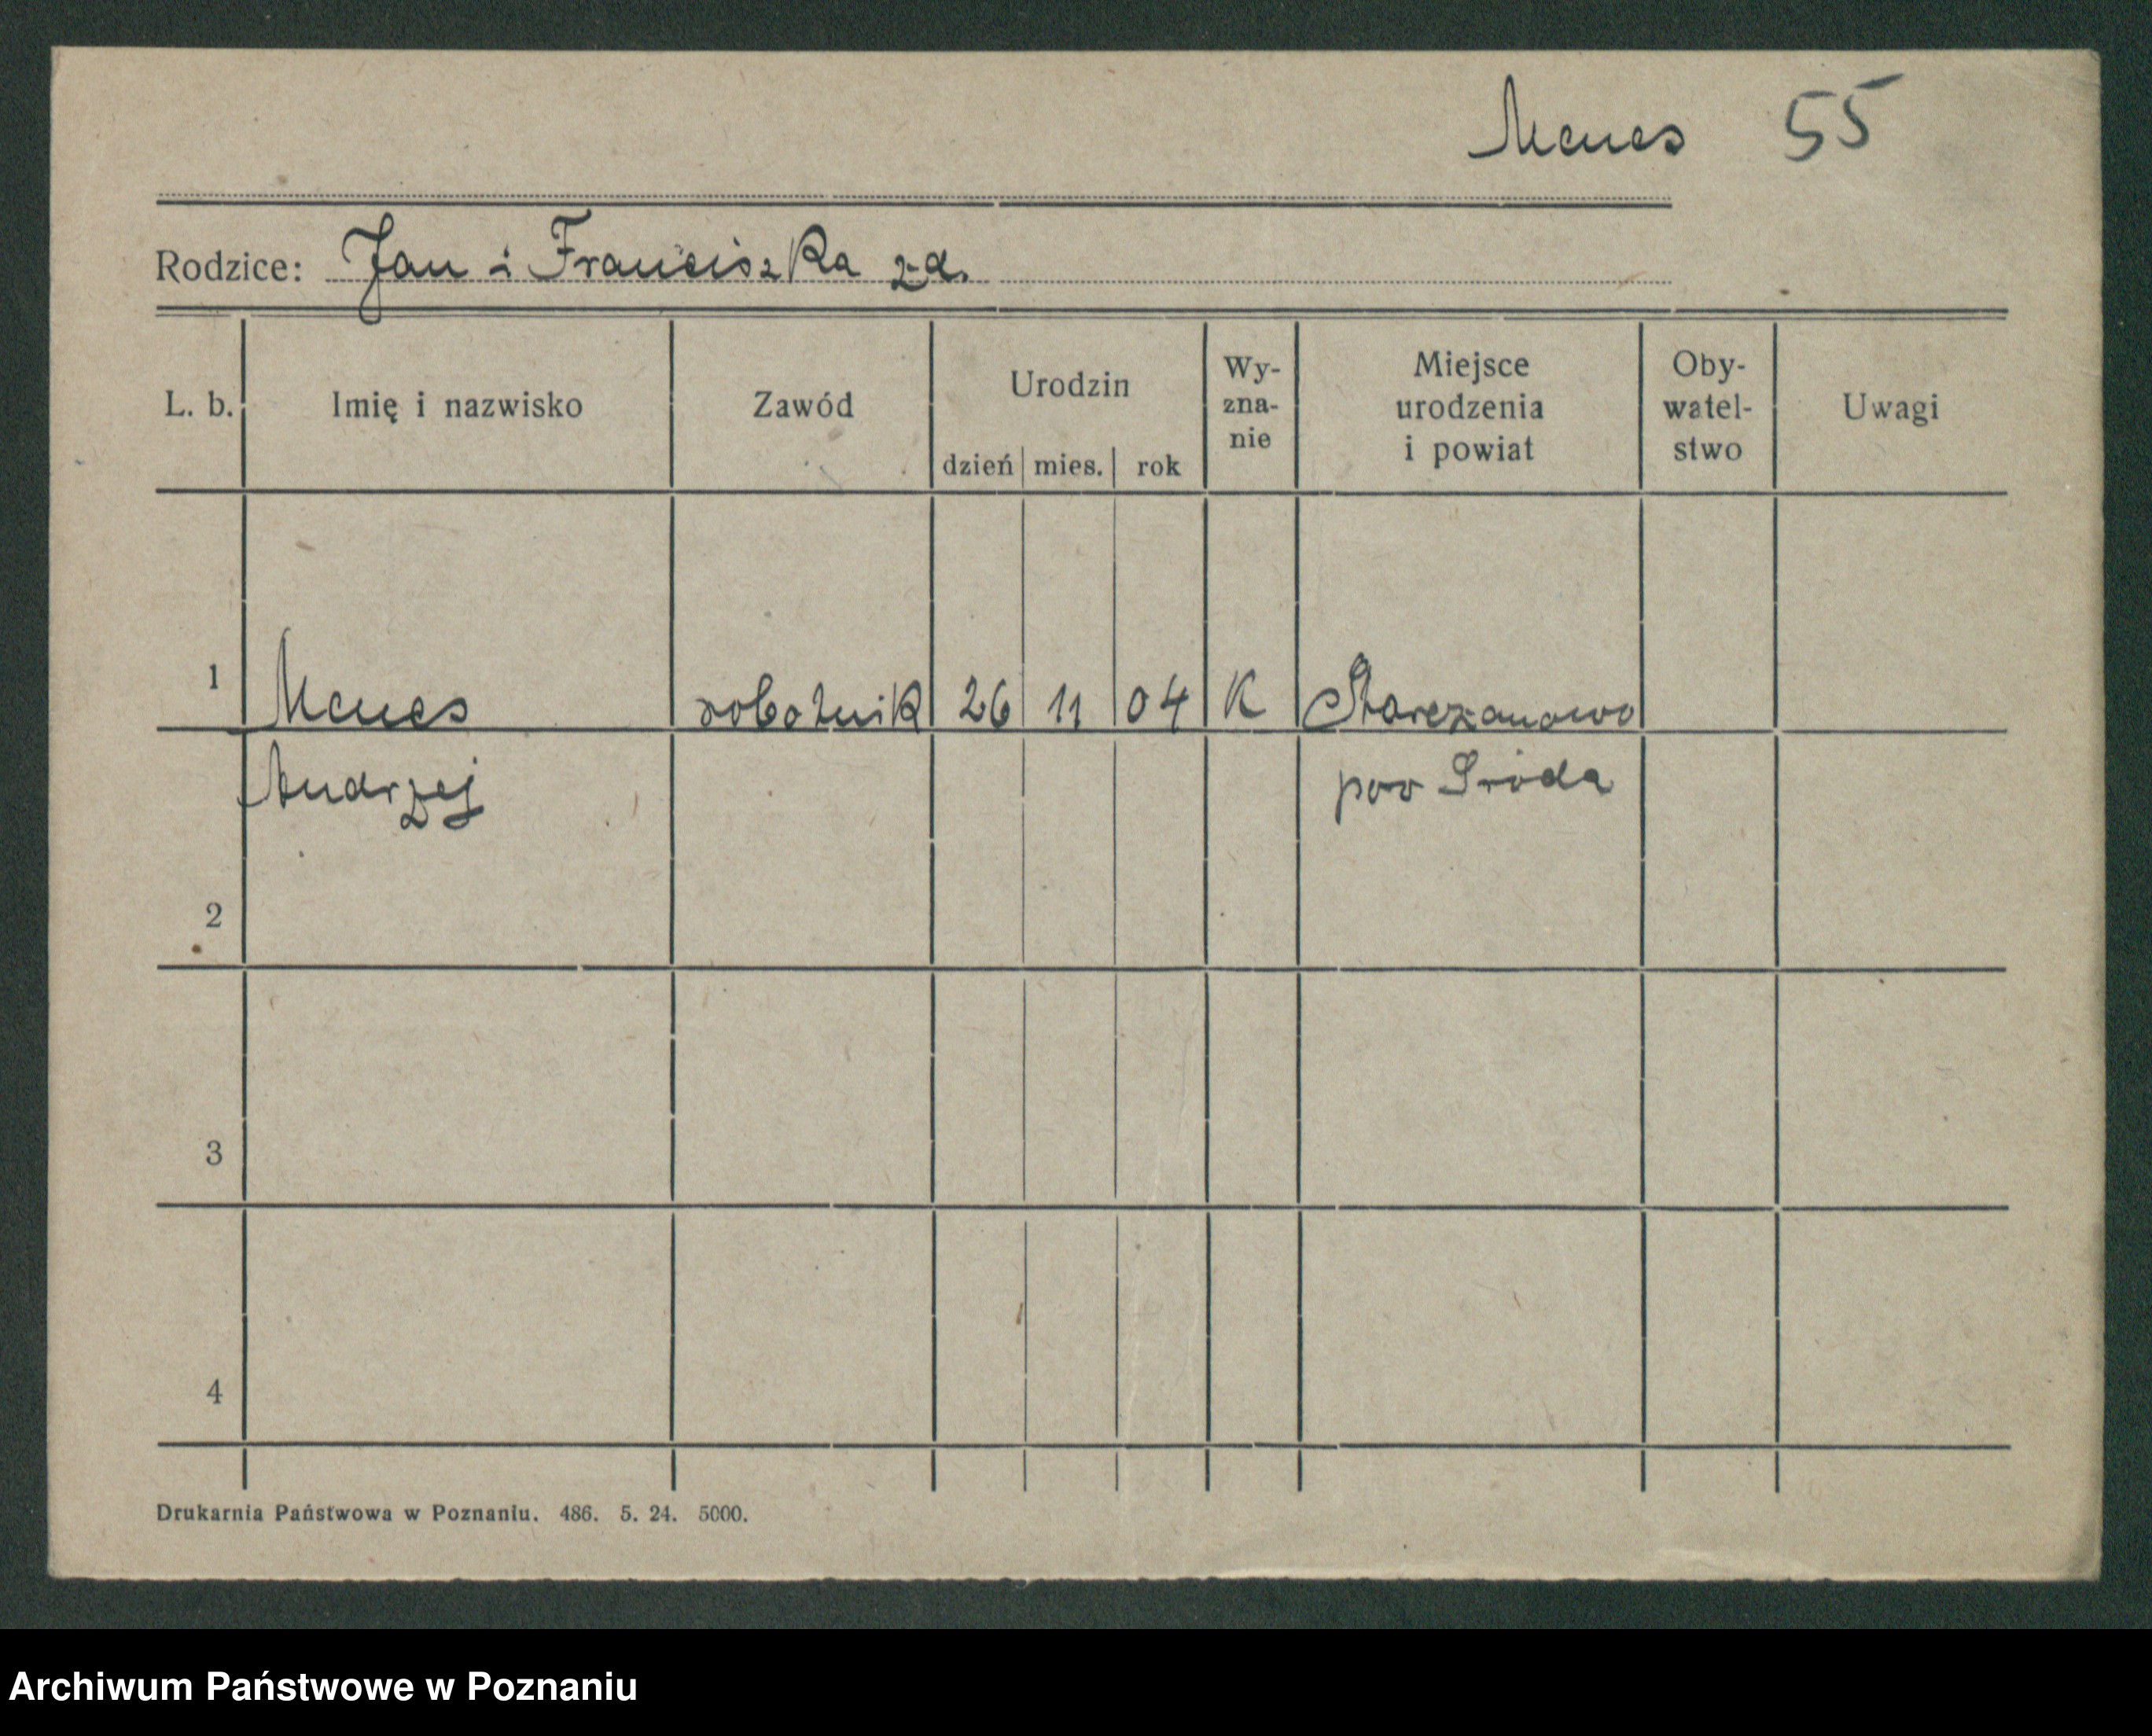 Menes 55
Rodzice: Jan i Franciszka zd.
L. b. Imię i nazwisko Zawód Urodzin dzień mies. rok Wy-zna-nie Miejsce urodzenia i powiat Oby-watel-stwo Uwagi
1 Menes robotnik 26 11 04 K Starczanowo
Andrzej pow Środa
2
3
4
Drukarnia Państwowa w Poznaniu. 486. 5. 24. 5000.
Archiwum Państwowe w Poznaniu